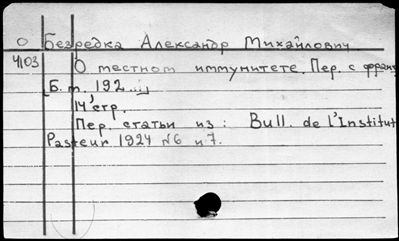 О Безредка Александр Михайлович
4103 О местном иммунитете. Пер. с франц.
[Б.м. 192...]
14 стр.
Пер. статьи из: Bull. de l'Institut
Pasteur 1924 №6 и 7.